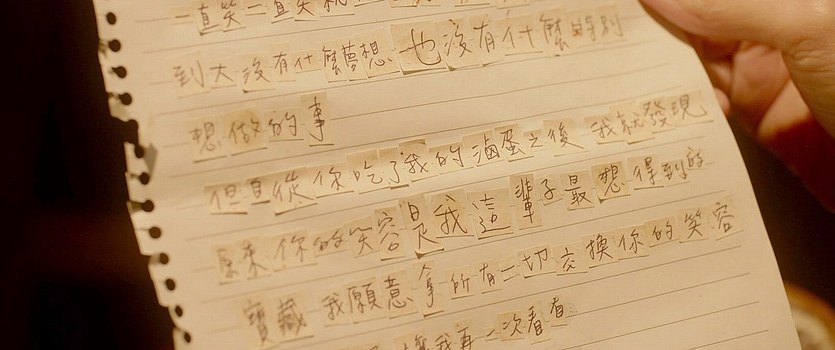 一直笑一直笑就
到大沒有什麼夢想 也沒有什麼特別
想做的事
但是從你吃了我的滷蛋之後 我就發現
原來你的笑容是我這輩子最想得到的
寶藏 我願意拿所有一切交換你的笑容
讓我再一次看看